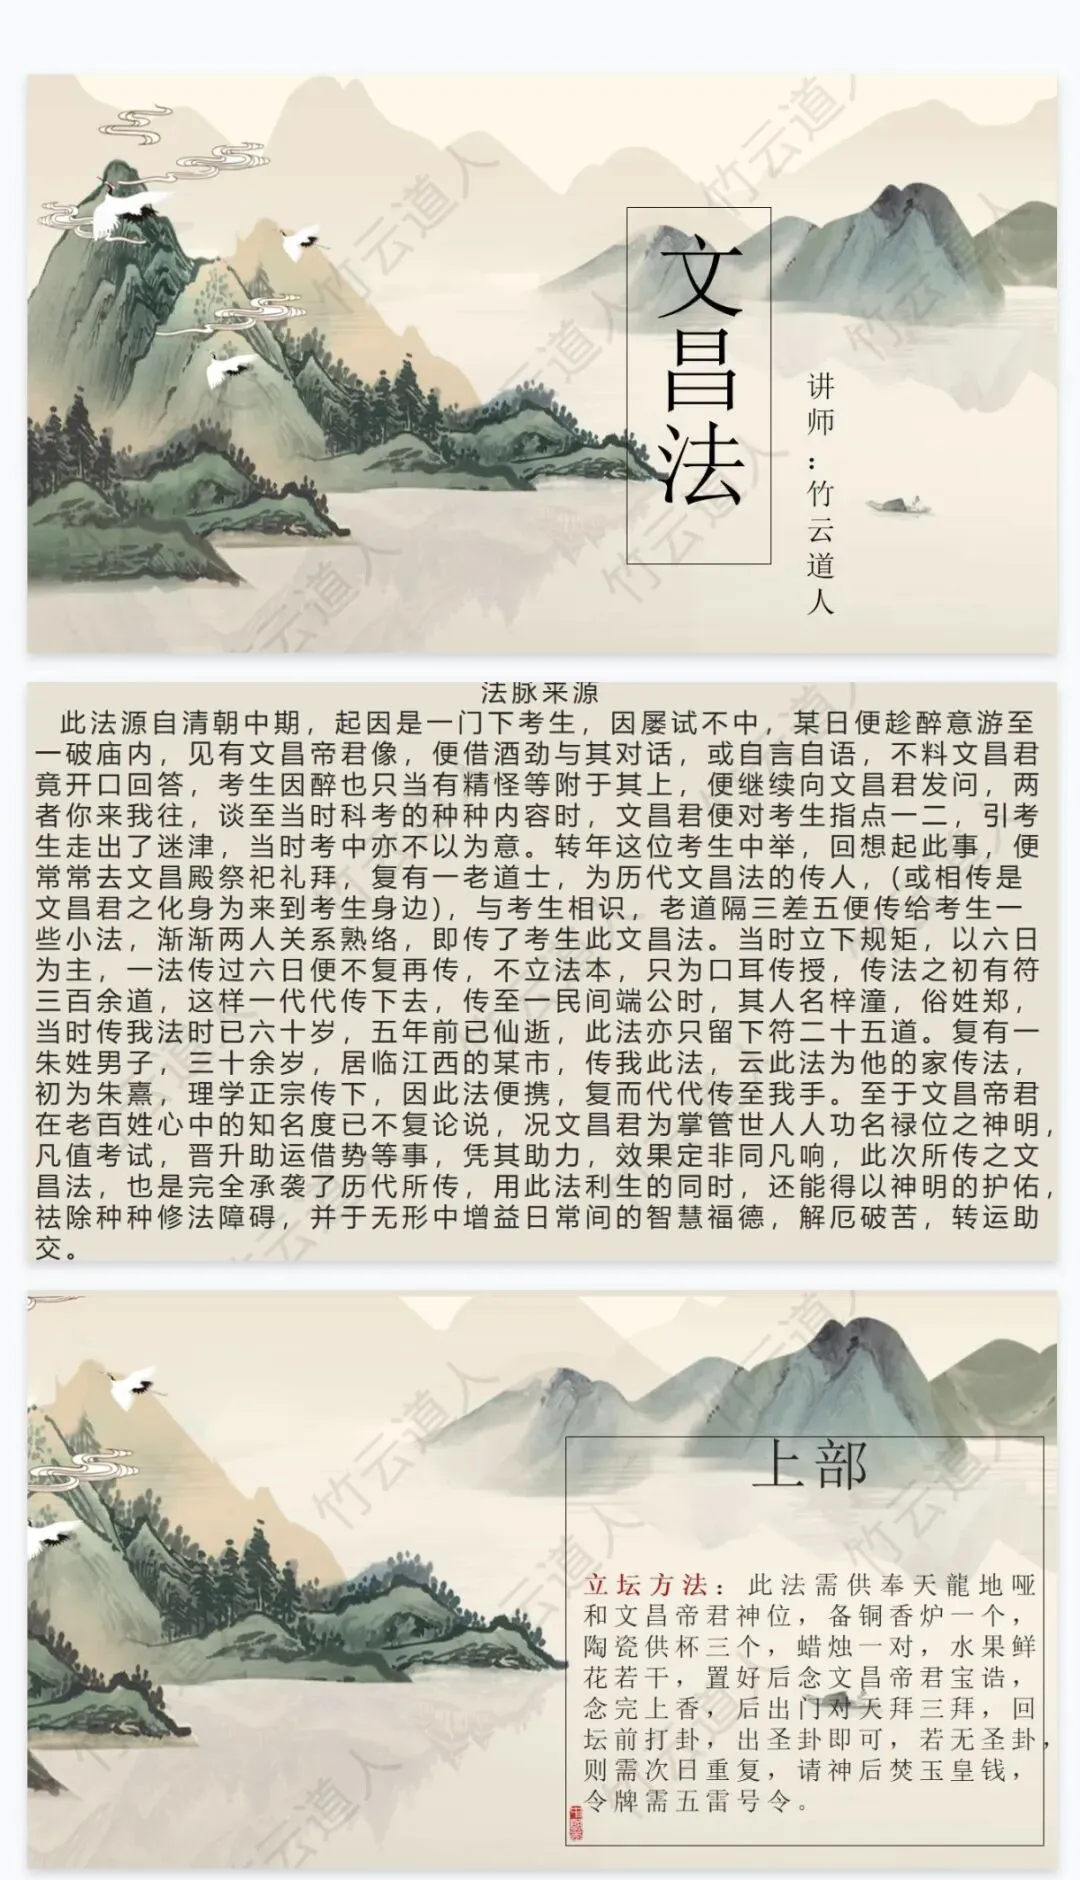 文昌法
讲师：竹云道人
法脉来源
此法源自清朝中期，起因是一门下考生，因屡试不中，某日便趁醉意游至
一破庙内，见有文昌帝君像，便借酒劲与其对话，或自言自语，不料文昌君
竟开口回答，考生因醉也只当有精怪等附于其上，便继续向文昌君发问，两
者你来我往，谈至当时科考的种种内容时，文昌君便对考生指点一二，引考
生走出了迷津，当时考中亦不以为意。转年这位考生中举，回想起此事，便
常常去文昌殿祭祀礼拜，复有一老道士，为历代文昌法的传人，(或相传是
文昌君之化身为来到考生身边)，与考生相识，老道隔三差五便传给考生一
些小法，渐渐两人关系熟络，即传了考生此文昌法。当时立下规矩，以六日
为主，一法传过六日便不复再传，不立法本，只为口耳传授，传法之初有符
三百余道，这样一代代传下去，传至一民间端公时，其人名梓潼，俗姓郑，
当时传我法时已六十岁，五年前已仙逝，此法亦只留下符二十五道。复有一
朱姓男子，三十余岁，居临江西的某市，传我此法，云此法为他的家传法，
初为朱熹，理学正宗传下，因此法便携，复而代代传至我手。至于文昌帝君
在老百姓心中的知名度已不复论说，况文昌君为掌管世人人功名禄位之神明，
凡值考试，晋升助运借势等事，凭其助力，效果定非同凡响，此次所传之文
昌法，也是完全承袭了历代所传，用此法利生的同时，还能得以神明的护佑，
祛除种种修法障碍，并于无形中增益日常间的智慧福德，解厄破苦，转运助
交。
上部
立坛方法：此法需供奉天龍地哑
和文昌帝君神位，备铜香炉一个，
陶瓷供杯三个，蜡烛一对，水果鲜
花若干，置好后念文昌帝君宝诰，
念完上香，后出门对天拜三拜，回
坛前打卦，出圣卦即可，若无圣卦，
则需次日重复，请神后焚玉皇钱，
令牌需五雷号令。